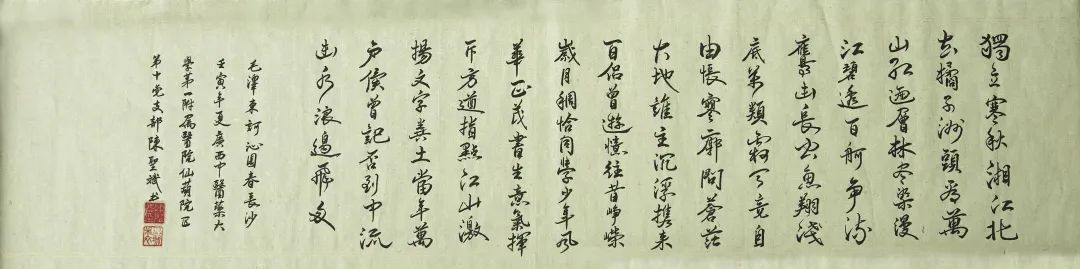 獨立寒秋湘江北
去橘子洲頭看萬
山红遍層林尽染漫
江碧透百舸争流
鷹击長空魚翔浅
底萬類霜天竞自
由悵寥廓問蒼茫
大地誰主沉浮携来
百侣曾遊憶往昔崢嶸
歲月稠恰同學少年風
華正茂書生意氣揮
斥方遒指點江山激
揚文字糞土當年萬
户侯曾記否到中流
击水浪遏飛舟
毛澤東詞沁园春長沙
壬寅年夏廣西中醫藥大
學第一附属醫院仙葫院区
第十党支部陳聖斌书